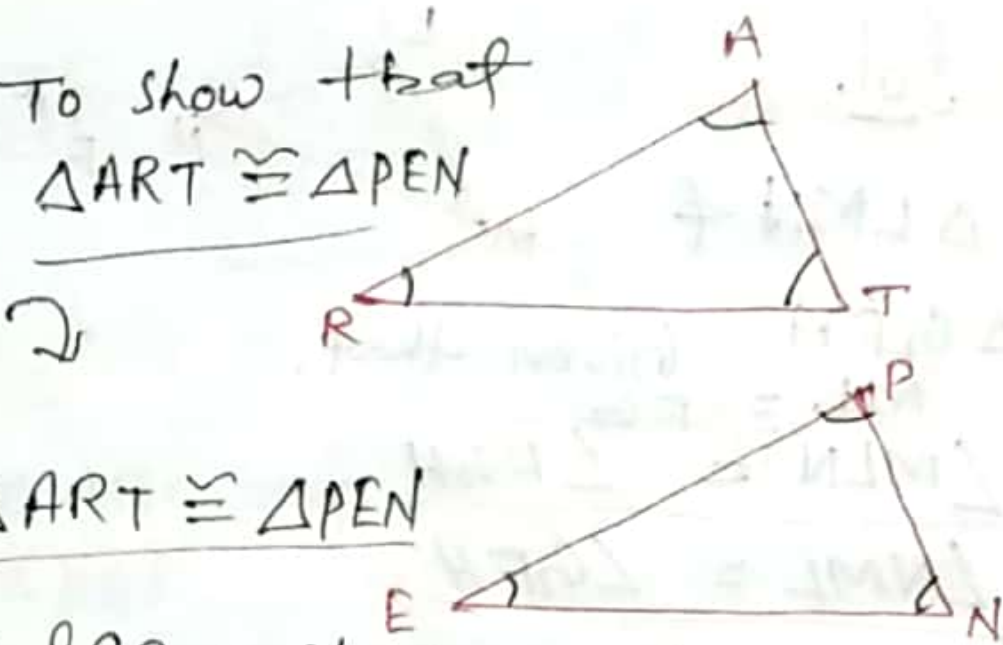 To show that
△ART ≅ △PEN
2
ART ≅ △PEN
A
R
T
P
E
N